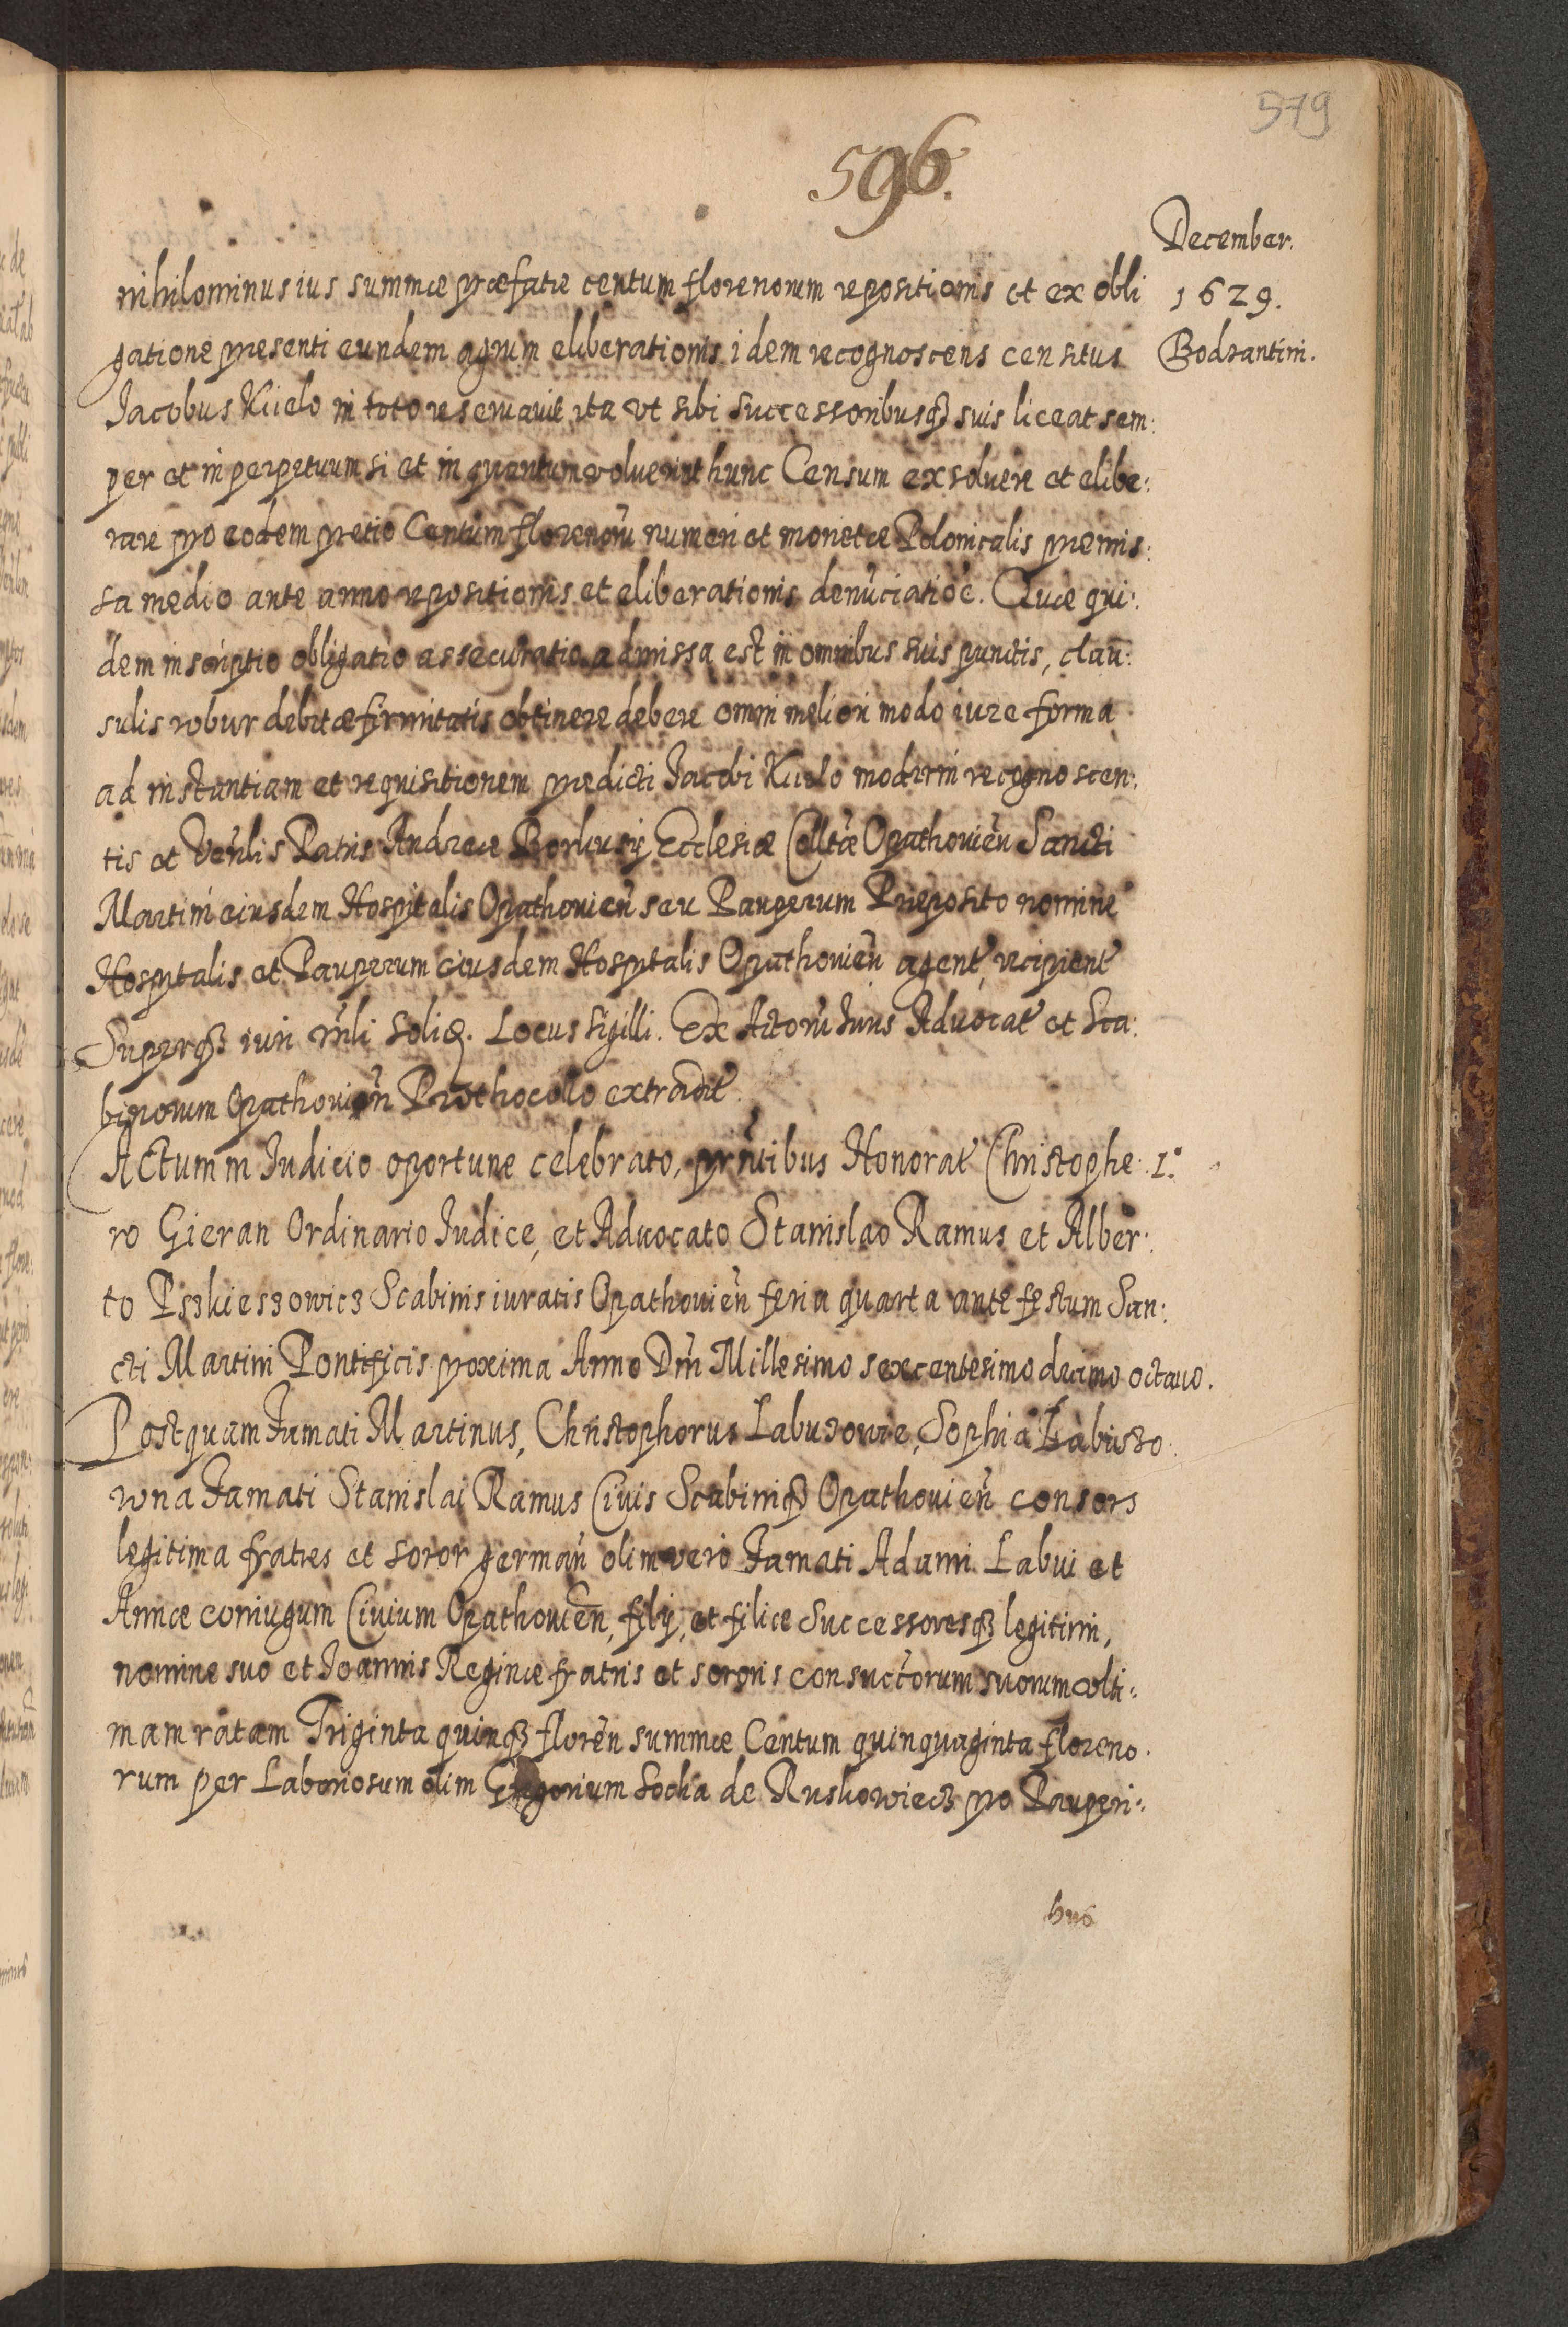 579
596.
December.
1629.
Bodzantin.
nihilominus ius summæ præfatæ centum florenorum repositionis et ex obli
gatione presenti eundem agrum eliberationis idem recognoscens censitus
Jacobus Kiielo in toto reseruauit ita vt sibi successoribusq3 suis liceat sem:
per et in perpetuum si et in quantum voluerint hunc Censum exsoluere et elibe:
rare pro eodem pretio Centum florenorũ numeri et monetæ Polonicalis premis:
sa medio ante anno repositionis et eliberationis denũciatiõe. Quæ qui:
dem inscriptio obligatio assecuratio admissa est in omnibus suis punctis, clau:
sulis robur debitæ firmitatis obtinere debere omni meliori modo iure forma
ad instantiam et requisitionem predicti Jacobi Kiielo moderni recognoscen:
tis et Venĩlis Patris Andreæ Borkusij Ecclesiæ Colltæ Opathouień Sancti
Martini eiusdem Hospitalis Opathouień seu Pauperum Preposito nomine
Hospitalis et Pauperum eiusdem Hospitalis Opathouień agent, recipient
Superq3 iuri rñli soliq. Locus sigilli. Ex Actorũ Juris Aduocat et Sca:
binorum Opathouień Prothocollo extradit.
Actum in Judicio oportune celebrato, prñtibus Honorat Christophe: 1.°
ro Gieran Ordinario Judice, et Aduocato Stanislao Ramus et Alber:
to Pszkieszowicz Scabinis iuratis Opathouień feria quarta ante festum San:
cti Martini Pontificis proxima Anno Dñi Millesimo sexcentesimo decimo octauo.
Postquam Famati Martinus, Christophorus Labuzowie, Sophia Labuszo
wna Famati Stanislai Ramus Ciuis Scabiniq3 Opathouień consors
legitima fratres et soror germań olim vero Famati Adami Labui et
Annæ coniugum Ciuium Opathouień, filij, et filiæ Successoresq3 legitimi,
nomine suo et Joannis Reginæ fratris et sororis consuctorum suorum vlti:
mam ratam Triginta quinq3 floreń summæ Centum quinquaginta floreno.
rum per Laboriosum olim Gregorium Socha de Ruskowiecz pro Pauperi:
bus